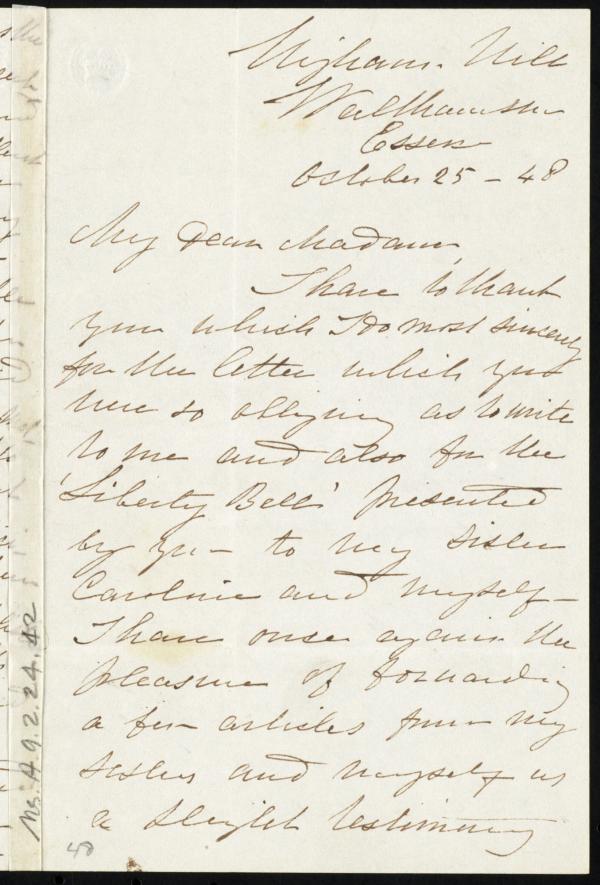 Higham Hill
Walthamstow
Essex
October 25 - 48
My Dear Madam,
I have to thank
you which I do most sincerely
for the letter which you
were so obliging as to write
to me and also for the
'Liberty Bell' presented
by you to my sister
Caroline and myself -
I have once again the
pleasure of forwarding
a few articles from my
sisters and myself as
a slight testimony
Ms. A. 9. 2. 24. 42
40